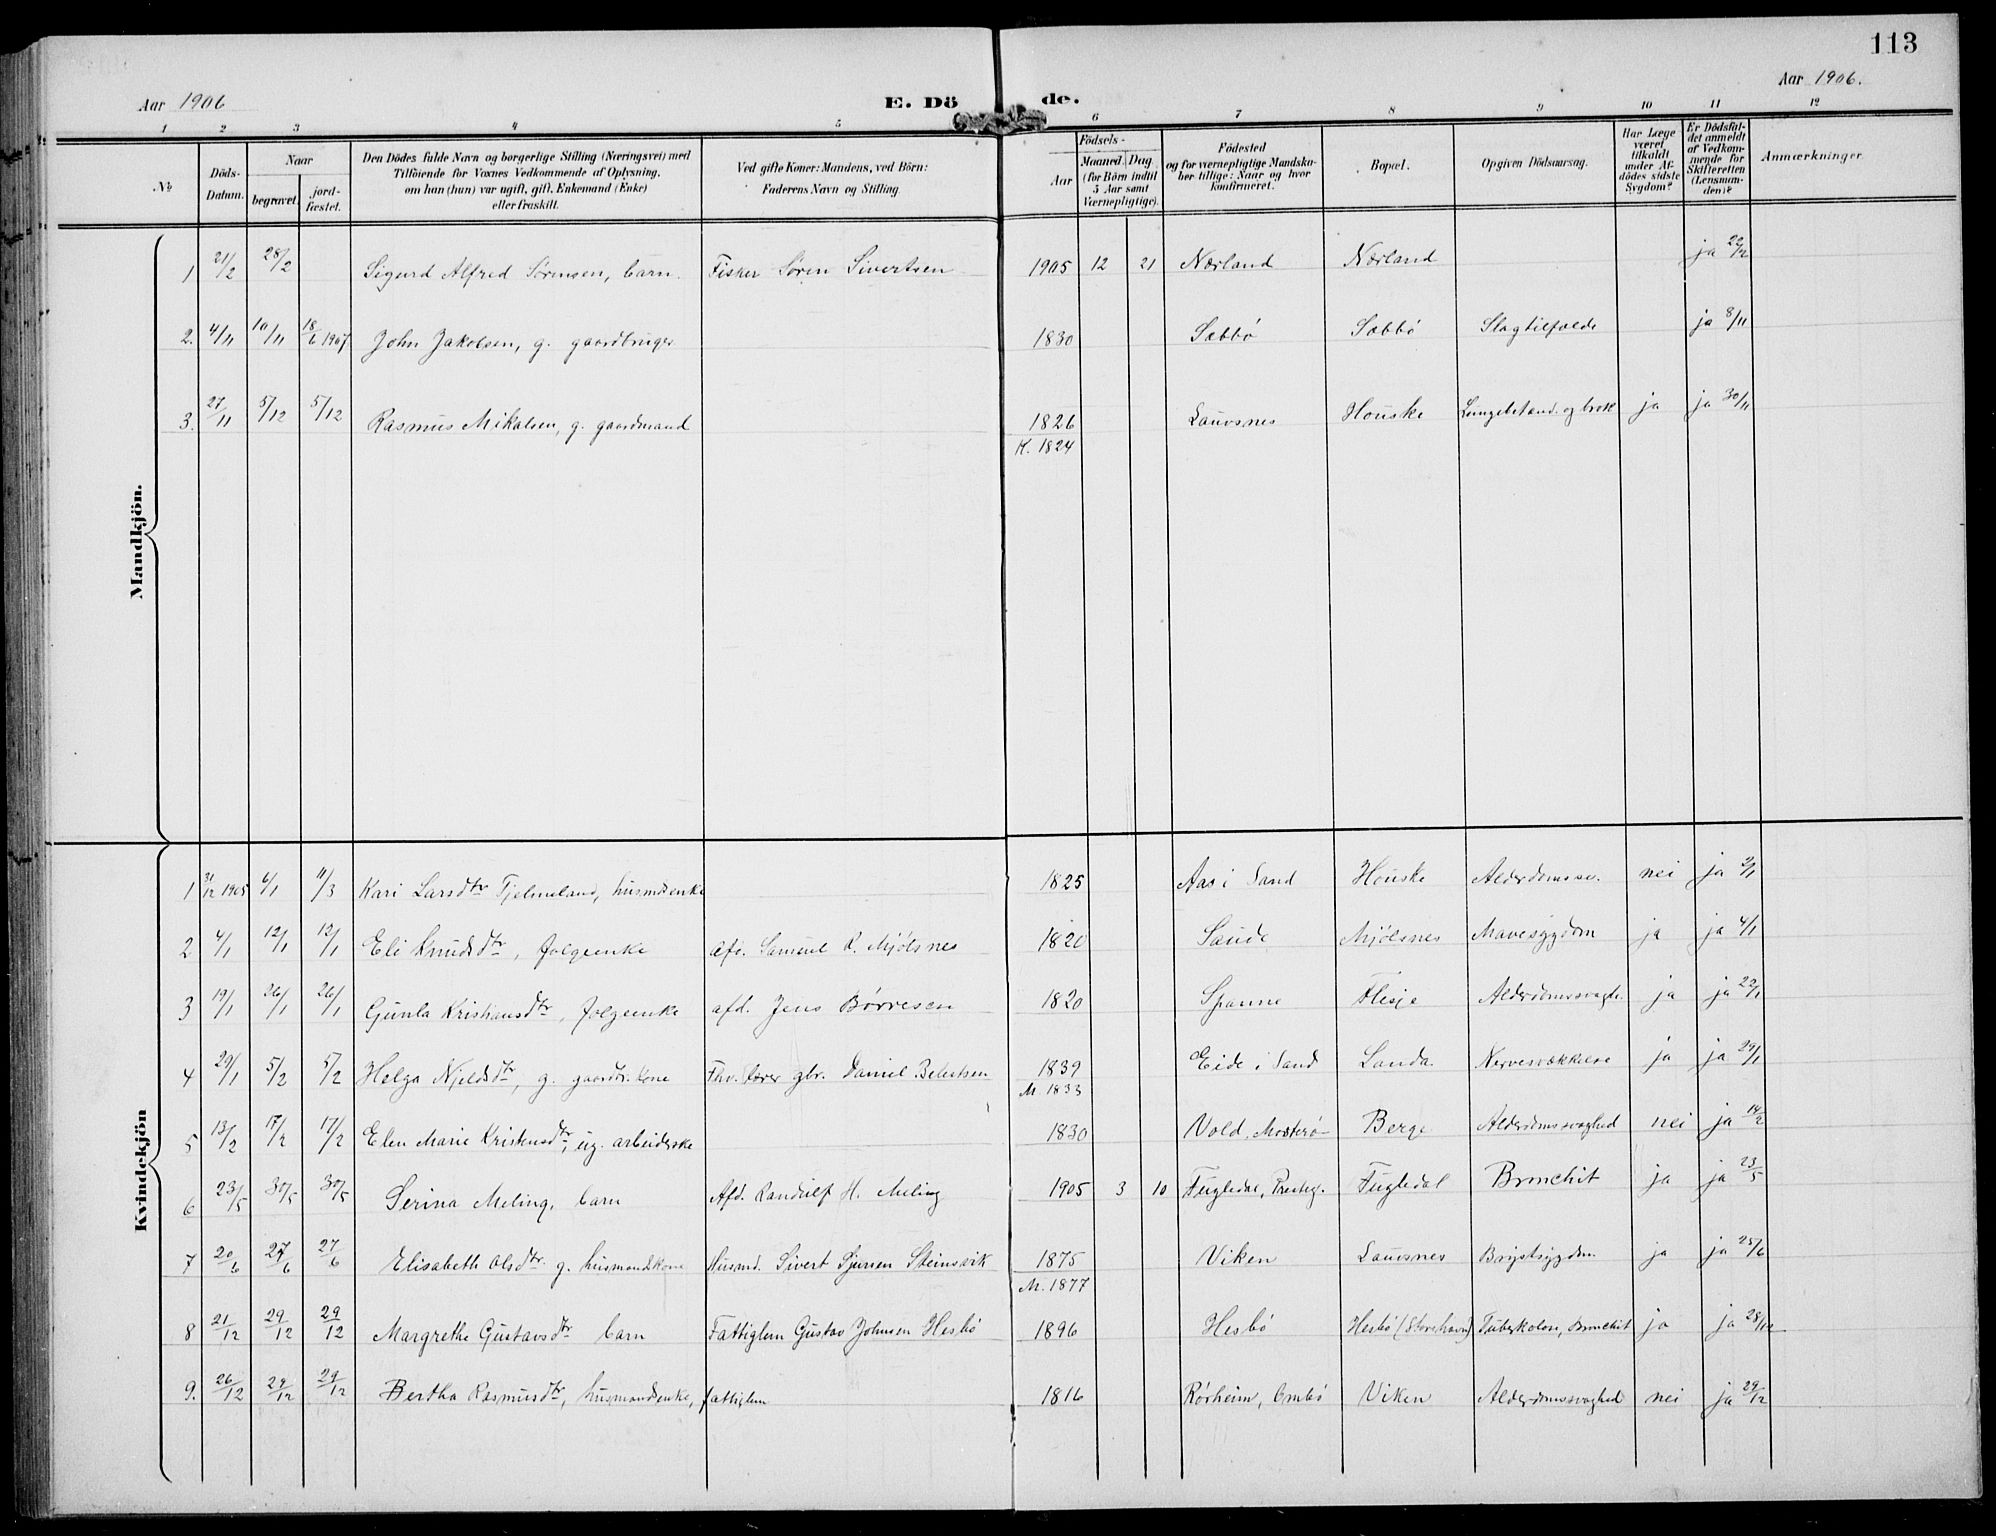 113
Aar 1906
E. Dö de.
Aar 1906.
1 2 3 4 5 6 7 8 9 10 11 12
No
Döds-Datum.
Naar
begravet.
jord-fæstet.
Den Dödes fulde Navn og borgerlige Stilling (Næringsvei) med
Tilföiende for Voxnes Vedkommende af Oplysning,
om han (hun) var ugift, gift, Enkemand (Enke)
eller fraskilt.
Ved gifte Koner: Mandens, ved Börn:
Faderens Navn og Stilling.
Födsels-
Aar
Maaned. Dag.
(for Börn indtil
5 Aar samt
Værnepligtige).
Födested
og for værnepligtige Mandska-
ber tillige: Naar og hvor
konfirmeret.
Bopæl.
Opgiven Dödsaarsag.
Har Læge
været
tilkaldt
under Af-
dödes sidste
Sygdom?
Er Dödsfal-
det anmeldt
af Vedkom-
mende for
Skifteretten
(Lensman-
den)?
Anmærkninger
Mandkjön.
1 21/2 28/2 Sigurd Alfred Sørensen, barn. Fisker Søren Sivertsen 1905 12 21 Nærland Nærland ja 22/2
2. 4/11 10/11 18/6 1907 John Jakobsen, g. gaardbruger 1830 Sæbbö Sæbbö Slagtilfælde ja 8/11
3. 27/11 5/12 5/12 Rasmus Mikalsen, g. gaardmand 1826 Lauvsnes Houske Lungebetænd. og brok ja ja 30/11
K. 1824
Kvindekjön
1 31/12 1905 6/1 11/3 Kari Larsdtr Tjelmeland, husmdsenke 1825 Aas i Sand Houske Alderdomssv. nei ja 2/1
2 4/1 12/1 12/1 Eli Knudsdtr, folgeenke afd. Samuel R. Mjølsnes 1820 Saude Mjølsnes Mavesygdom ja ja 4/1
3 19/1 26/1 26/1 Gunla Kristiansdtr, folgeenke afd. Jens Børresen 1820 Spanne Flesje Alderdomssvagh. ja ja 22/1
4 29/1 5/2 5/2 Helga Njeldsdtr, g. gaardbr. kone Fhv. lærer gbr. Daniel 1839 Eide i Sand Landa Nervesvækkelse ja ja 29/1
M. 1833
5 13/2 17/2 17/2 Elen Marie Kristensdtr, ug. arbeiderske 1830 Vold, Mosterø Berge Alderdomssvaghed nei ja 14/2
6 23/5 30/5 30/5 Serina Meling, barn Afd. Randulf H. Meling 1905 3 10 Fugledal, Fugledal Bronchit ja ja 23/5
7 20/6 27/6 27/6 Elisabeth Olsdtr. g. husmandskone Husmd. Sivert Sjursen Steinsvik 1875 Viken Lauvsnes Brystsygdom ja ja 25/6
M. 1877
8 21/12 29/12 29/12 Margrethe Gustavsdtr barn Fattiglem Gustav Johnsen Hesbö 1896 Hesbö Hesbö (Storehavn) Tuberkolose, Bronchit ja ja 28/12
9. 26/12 29/12 29/12 Bertha Rasmusdtr, husmandsenke, fattiglem 1816 Rörheim, Ombö Viken Alderdomssvaghed nei ja 29/12